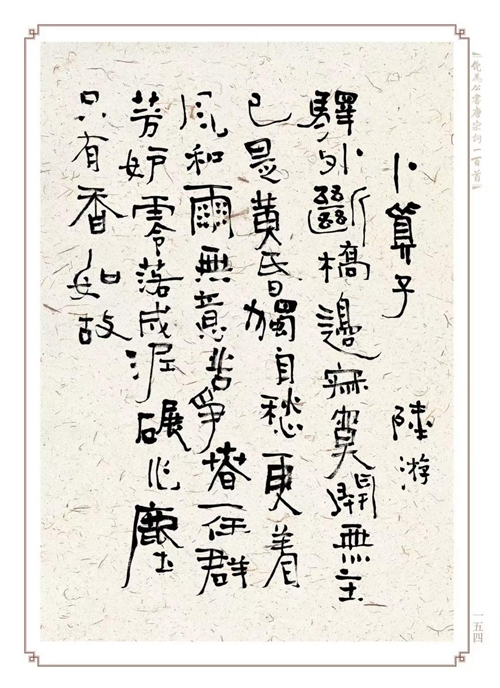 倪為公書唐宋詞一百首
卜算子 陸游
驛外斷橋邊寂寞開無主
已是黃昏獨自愁更着
風和雨無意苦爭春一任群
芳妒零落成泥碾作塵
只有香如故
一五四